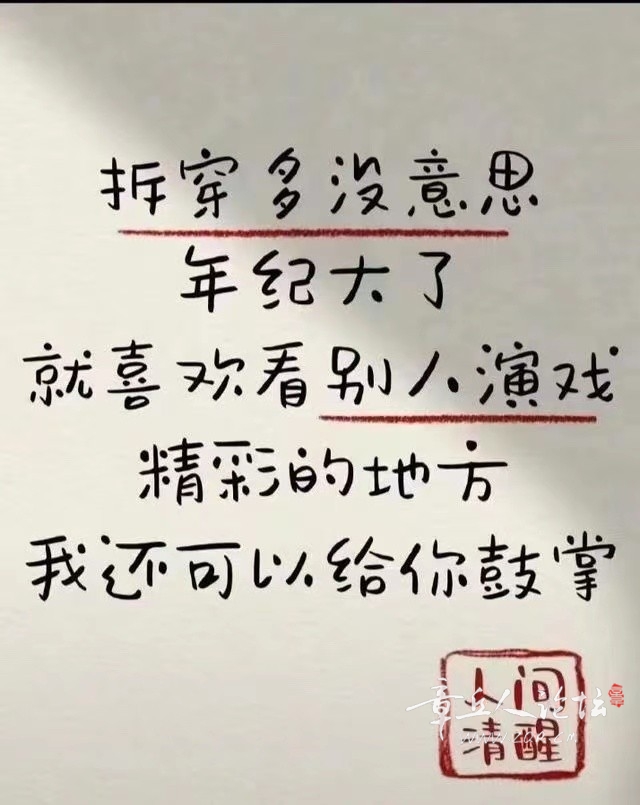 拆穿多没意思
年纪大了
就喜欢看别人演戏
精彩的地方
我还可以给你鼓掌
人间
清醒
章丘人论坛